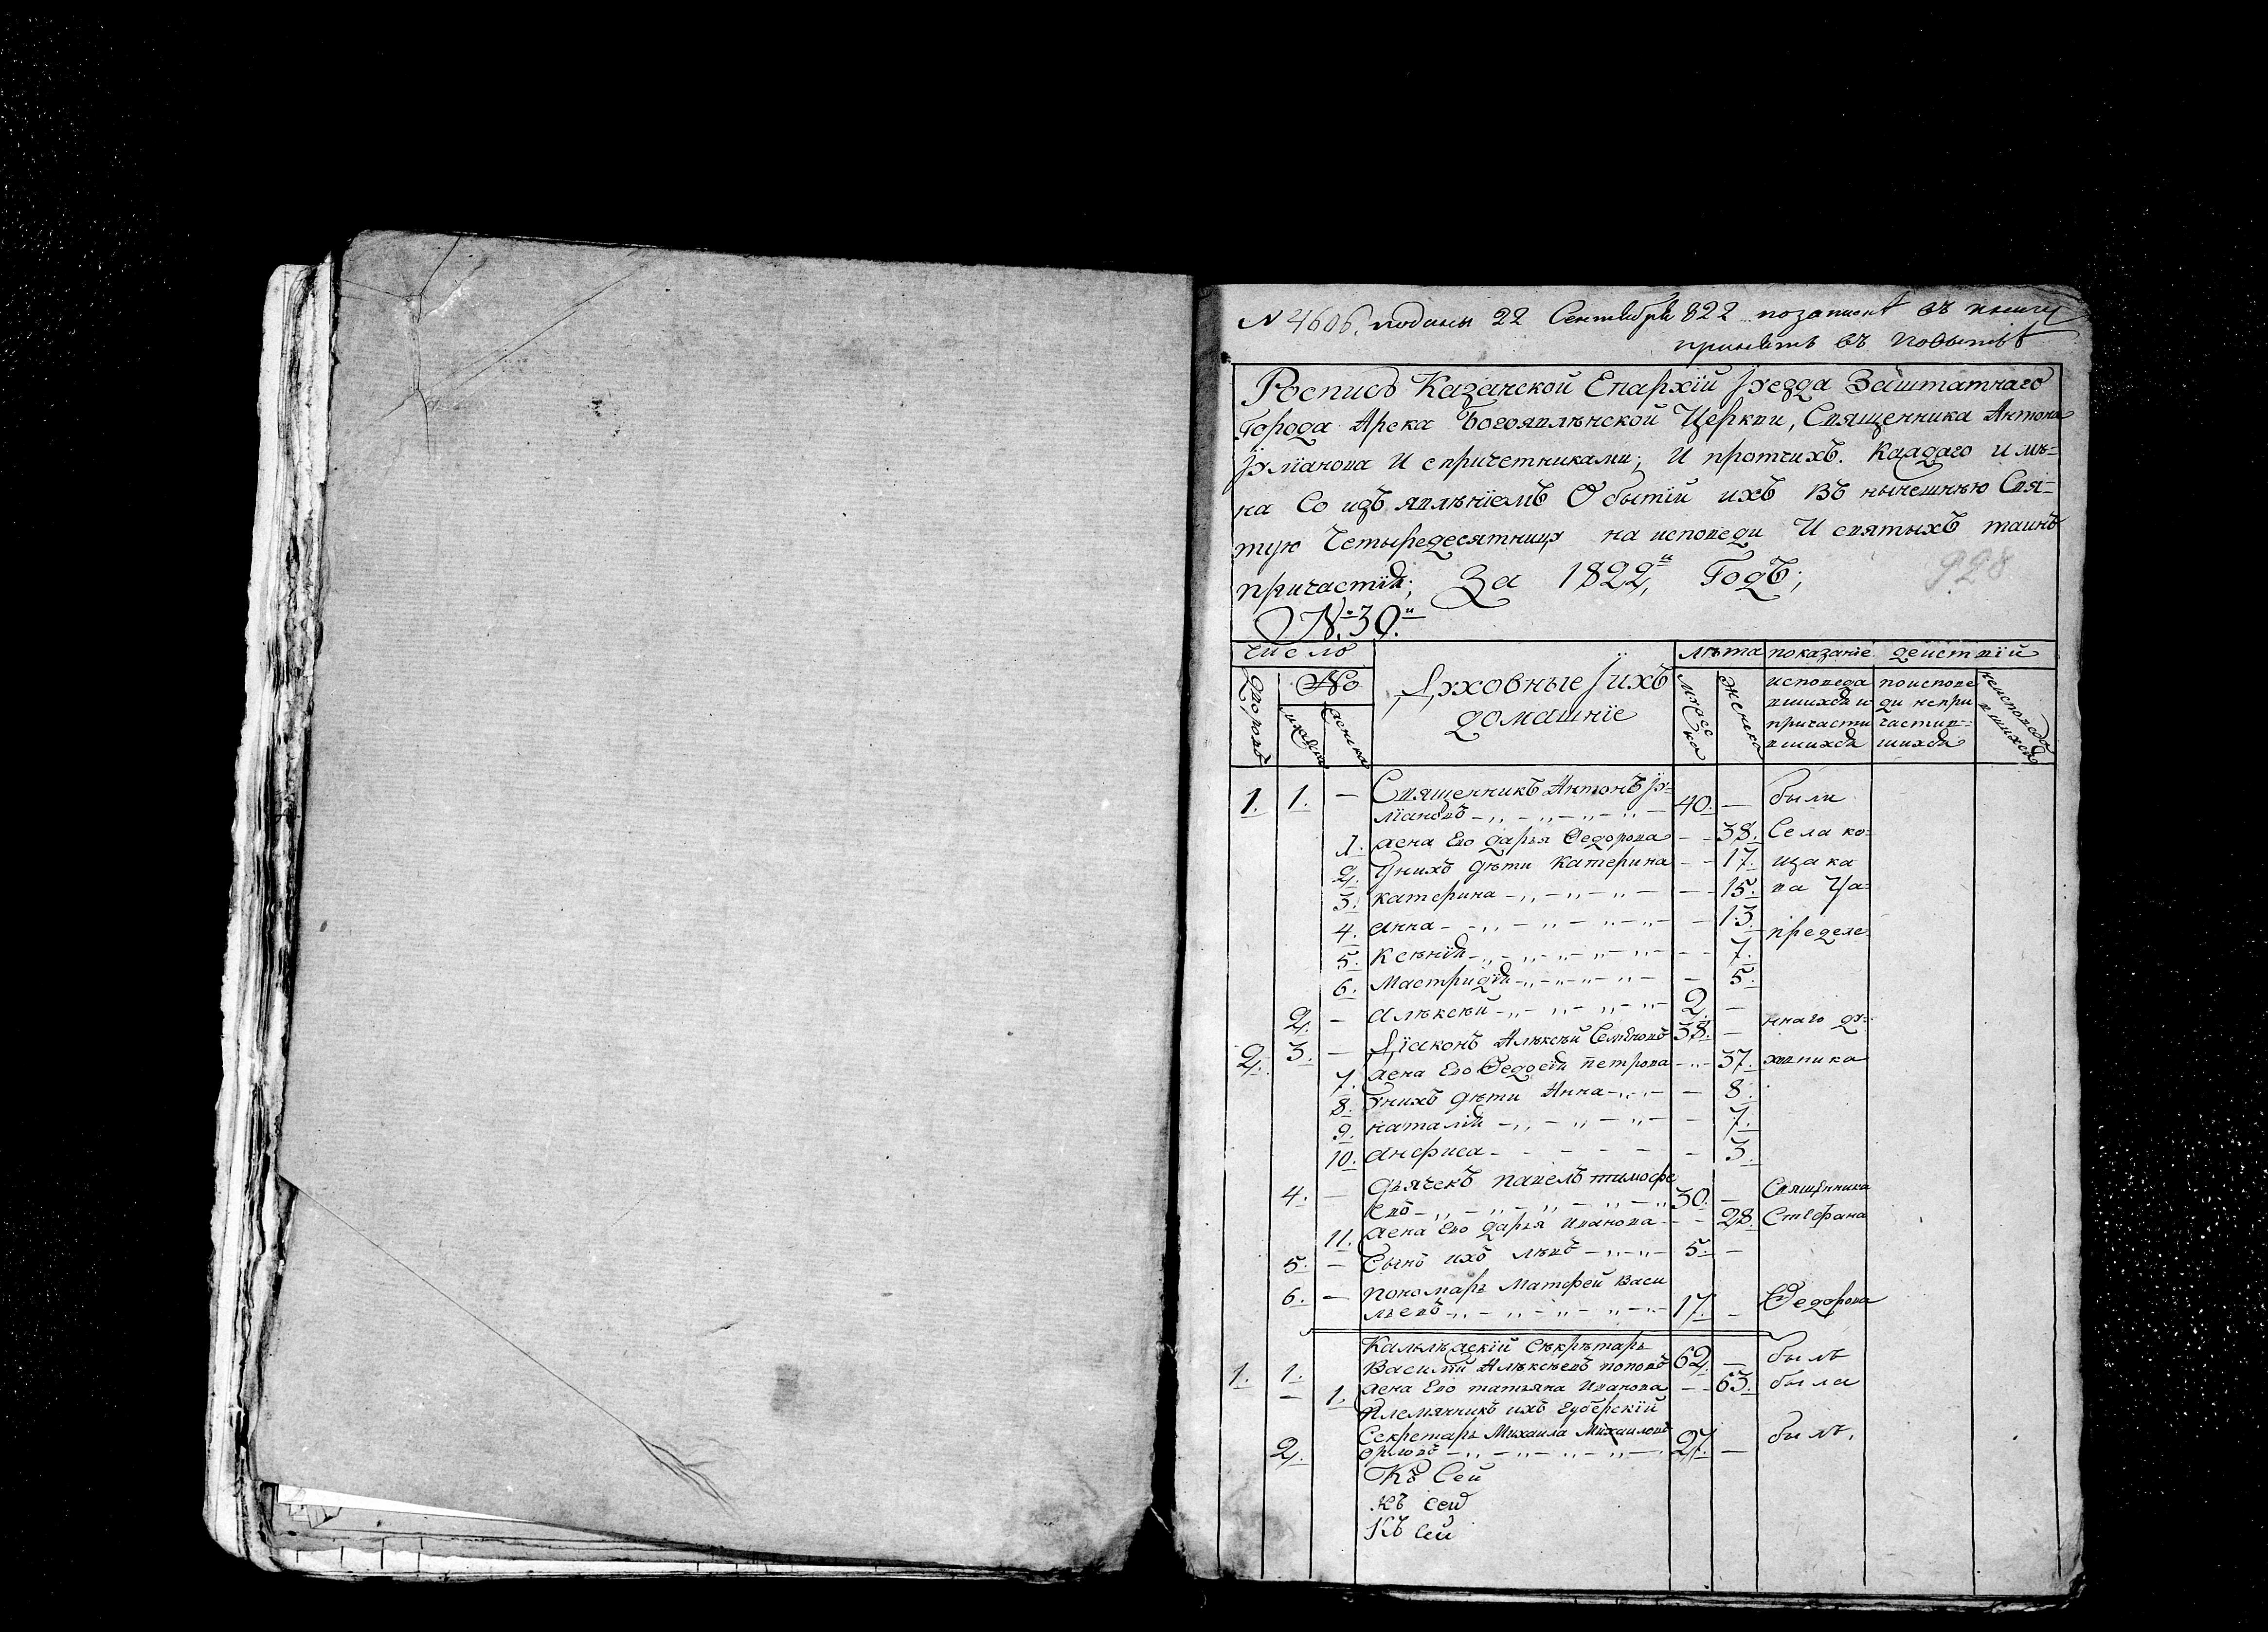 N 4606. поданы 22 Сентября 822 позапискѣ въ книгу
принять въ повытьѣ
Роспись Казанской Епархїи Уезда Заштатнаго
Города Арска Богоявлѣнской Церкви, Священника Антона
Ухманова И спричетниками; И протчихъ. Каждаго имѣ=
на Со изъявлѣнїемъ О бытїи ихъ Въ нынешнѣю Свя=
тую Четыредесятницу на исповеди И святыхъ таинъ
причастїя; За 1822й Годъ;
928
№ 30й
число
лѣта показанїе действїй
дворовъ
№
мужска
женска
Духовные Ӱихъ
домашнїе
мужеска
женска
исповеда
вшихся и
причасти
вшихся
поиспове
ди непри
частив=
шихся
неисповеда
вшихся
1. 1. — Священникъ Антонъ Ух=
мановъ 40. — были
1. жена Его Дарья Федорова — 38. Села ко=
2. Унихъ дѣти Катерина — 17. щака
3. катерина — 15. ва Ца=
4. анна — 13.
пределе
5. ксѣнїя — 7.
6. Мастридїя — 5.
2. — алѣксѣй 2. —
ннаго ду=
2. 3. — Дїаконъ Алѣксѣй Семеновъ 38. —
7. жена Его Федосїя петрова — 37. ховника
8. Унихъ дѣти Анна — 8.
9. наталїя — 7.
10. анфиса — 3.
4. — дьячекъ павелъ тимофе
евъ 30. — Священника
11. жена Его дарья иванова — 28. Стефана
5. — Сынъ ихъ лѣвъ 5. —
6. — пономарь Матфей Васи
льевъ 17. — Федорова
Калѣжскїй Сѣкрѣтарь
1. 1. Василїй Алѣксѣевъ поповъ 62. — былъ
— 1. жена Его татьяна Иванова — 63. была
Племянникъ ихъ Губерскїй
Секретарь Михаила Михаиловъ
2. орловъ 27. — былъ.
Къ Сей
къ сей
Къ сей